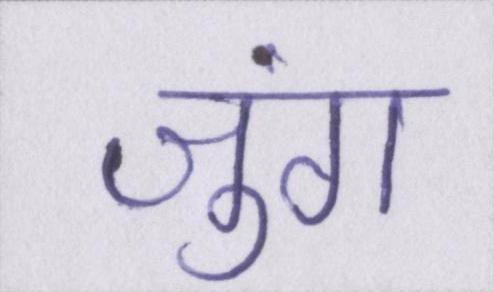 जुंग